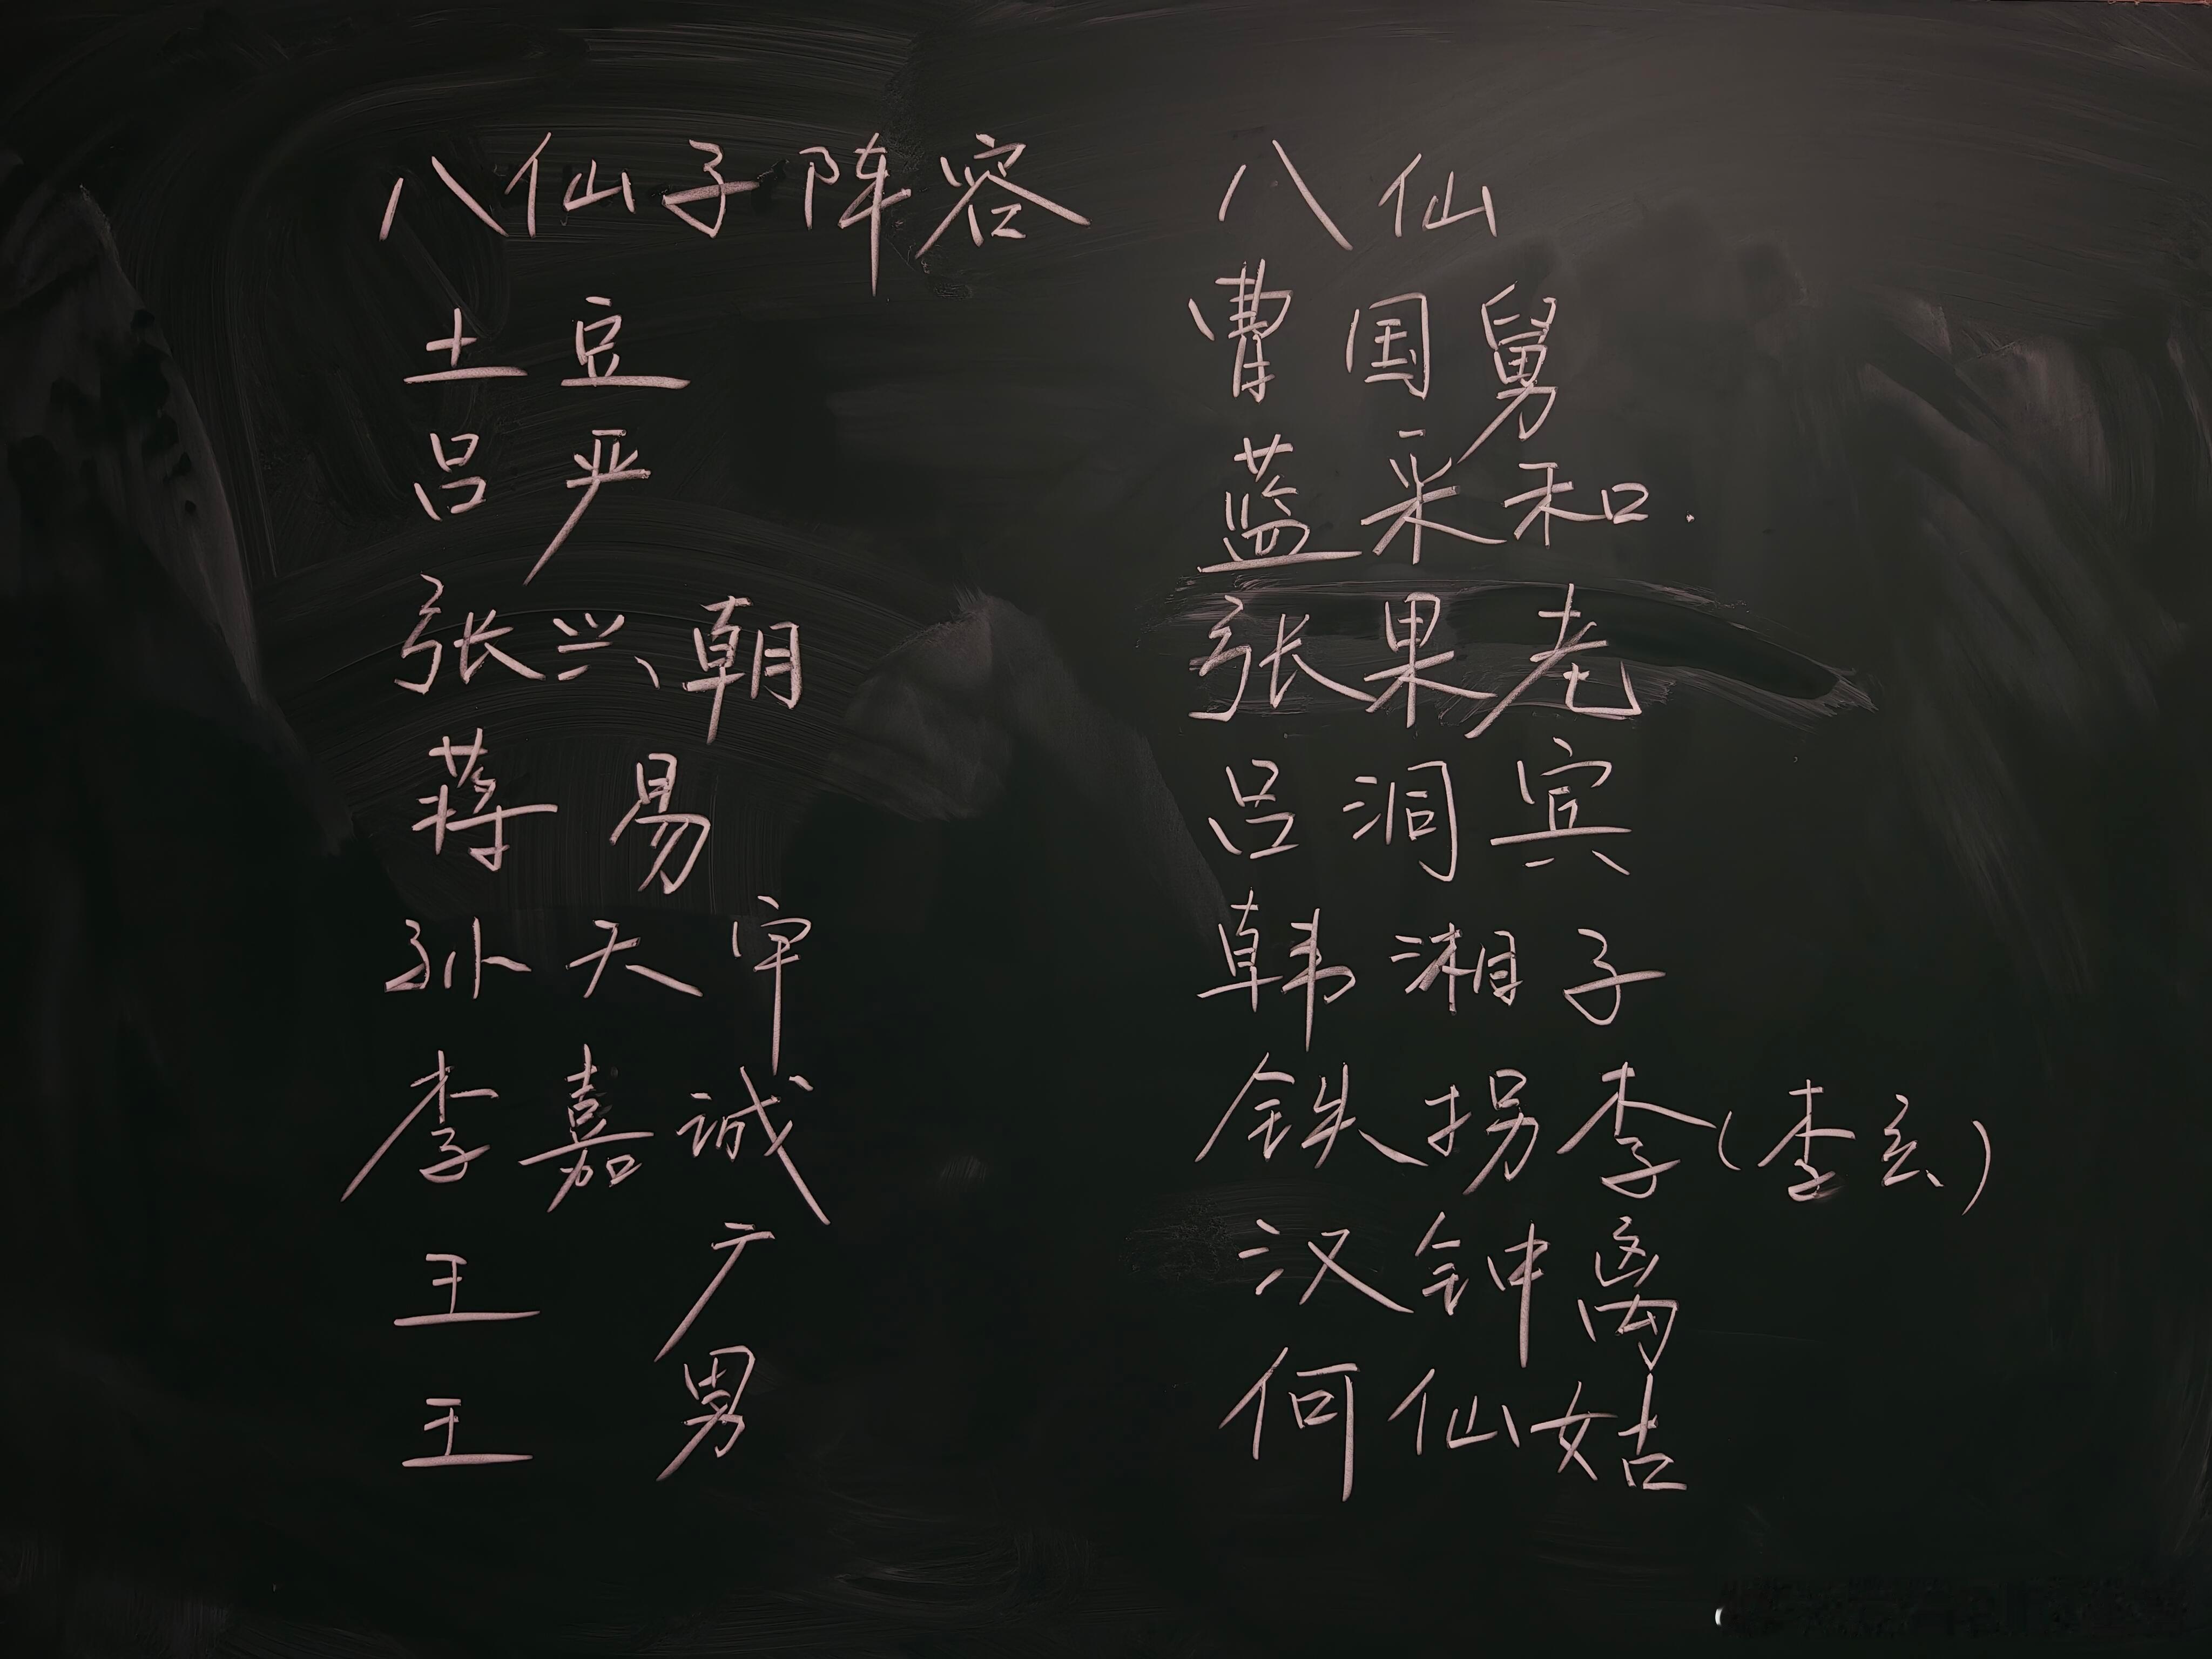 八仙子阵容
土豆
吕严
张兴朝
蒋易
孙天宇
李嘉诚
王广
王男
八仙
曹国舅
蓝采和.
张果老
吕洞宾
韩湘子
铁拐李(李玄)
汉钟离
何仙姑